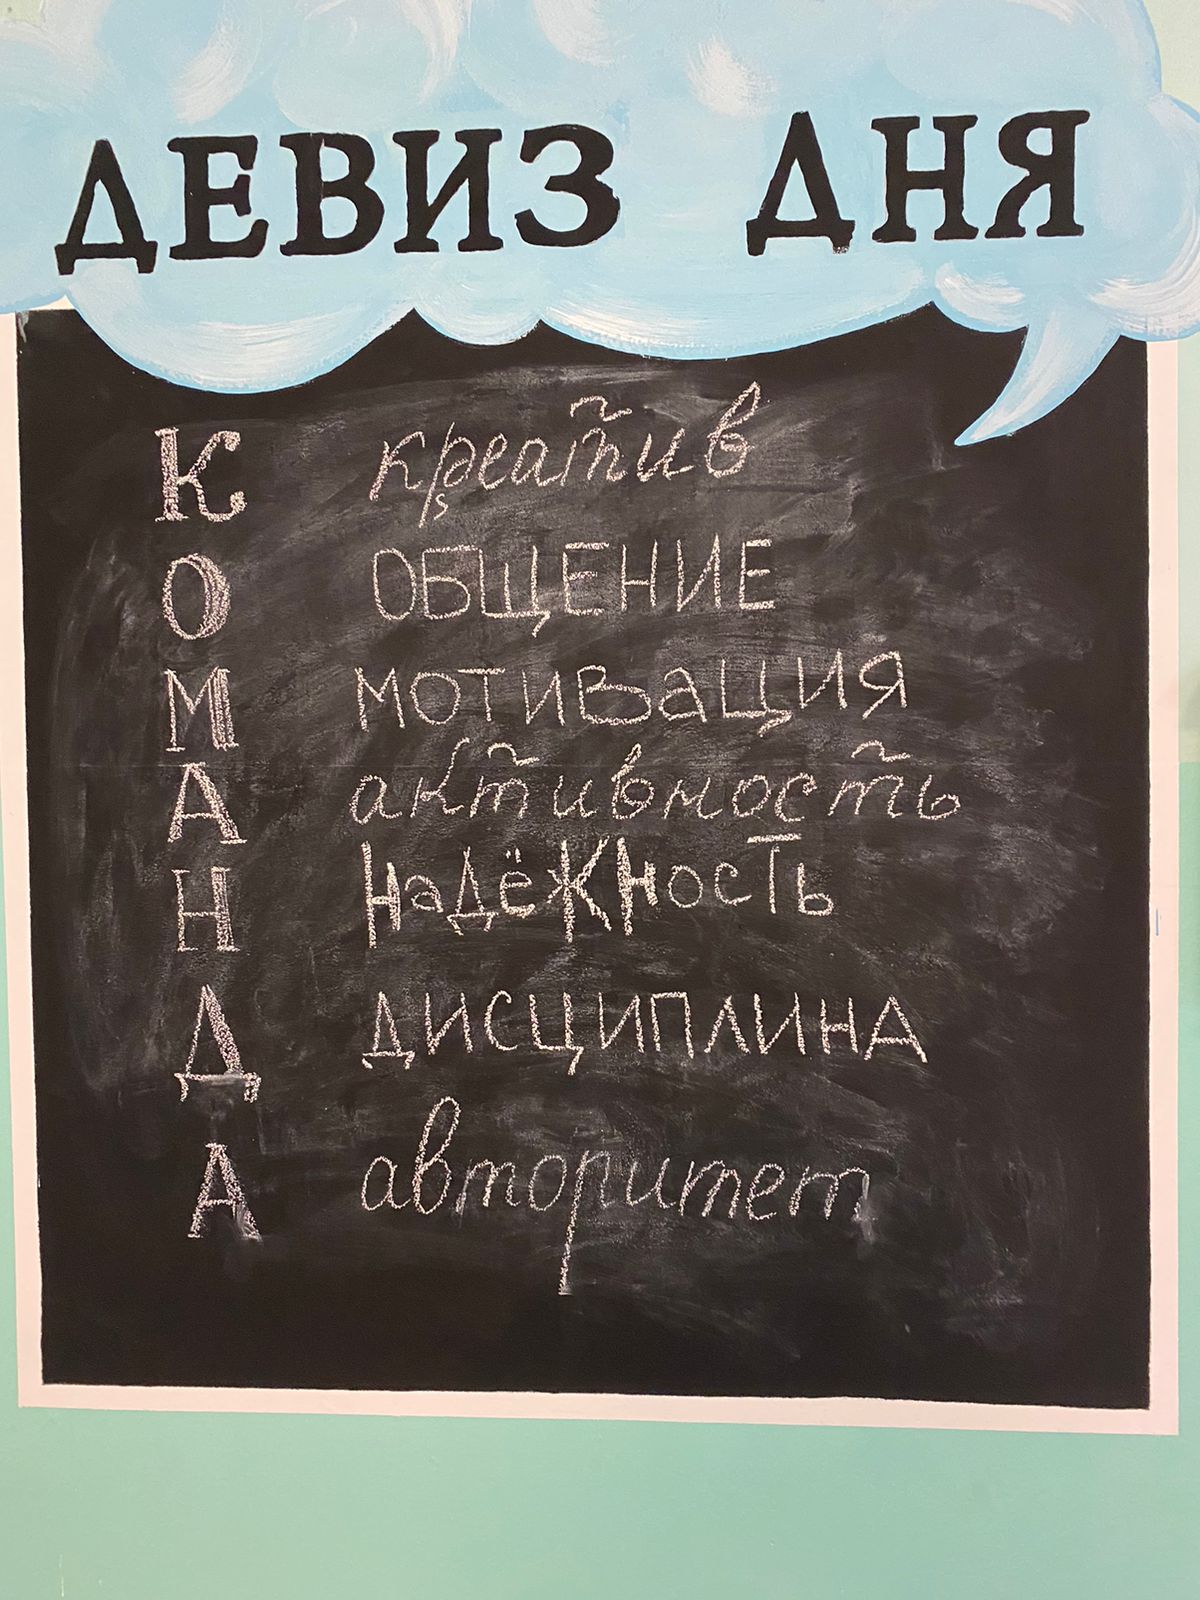 ДЕВИЗ ДНЯ
К креатив
О ОБЩЕНИЕ
М МОТИВАЦИЯ
А активность
Н НаДёЖНость
Д ДИСЦИПЛИНА
А авторитет